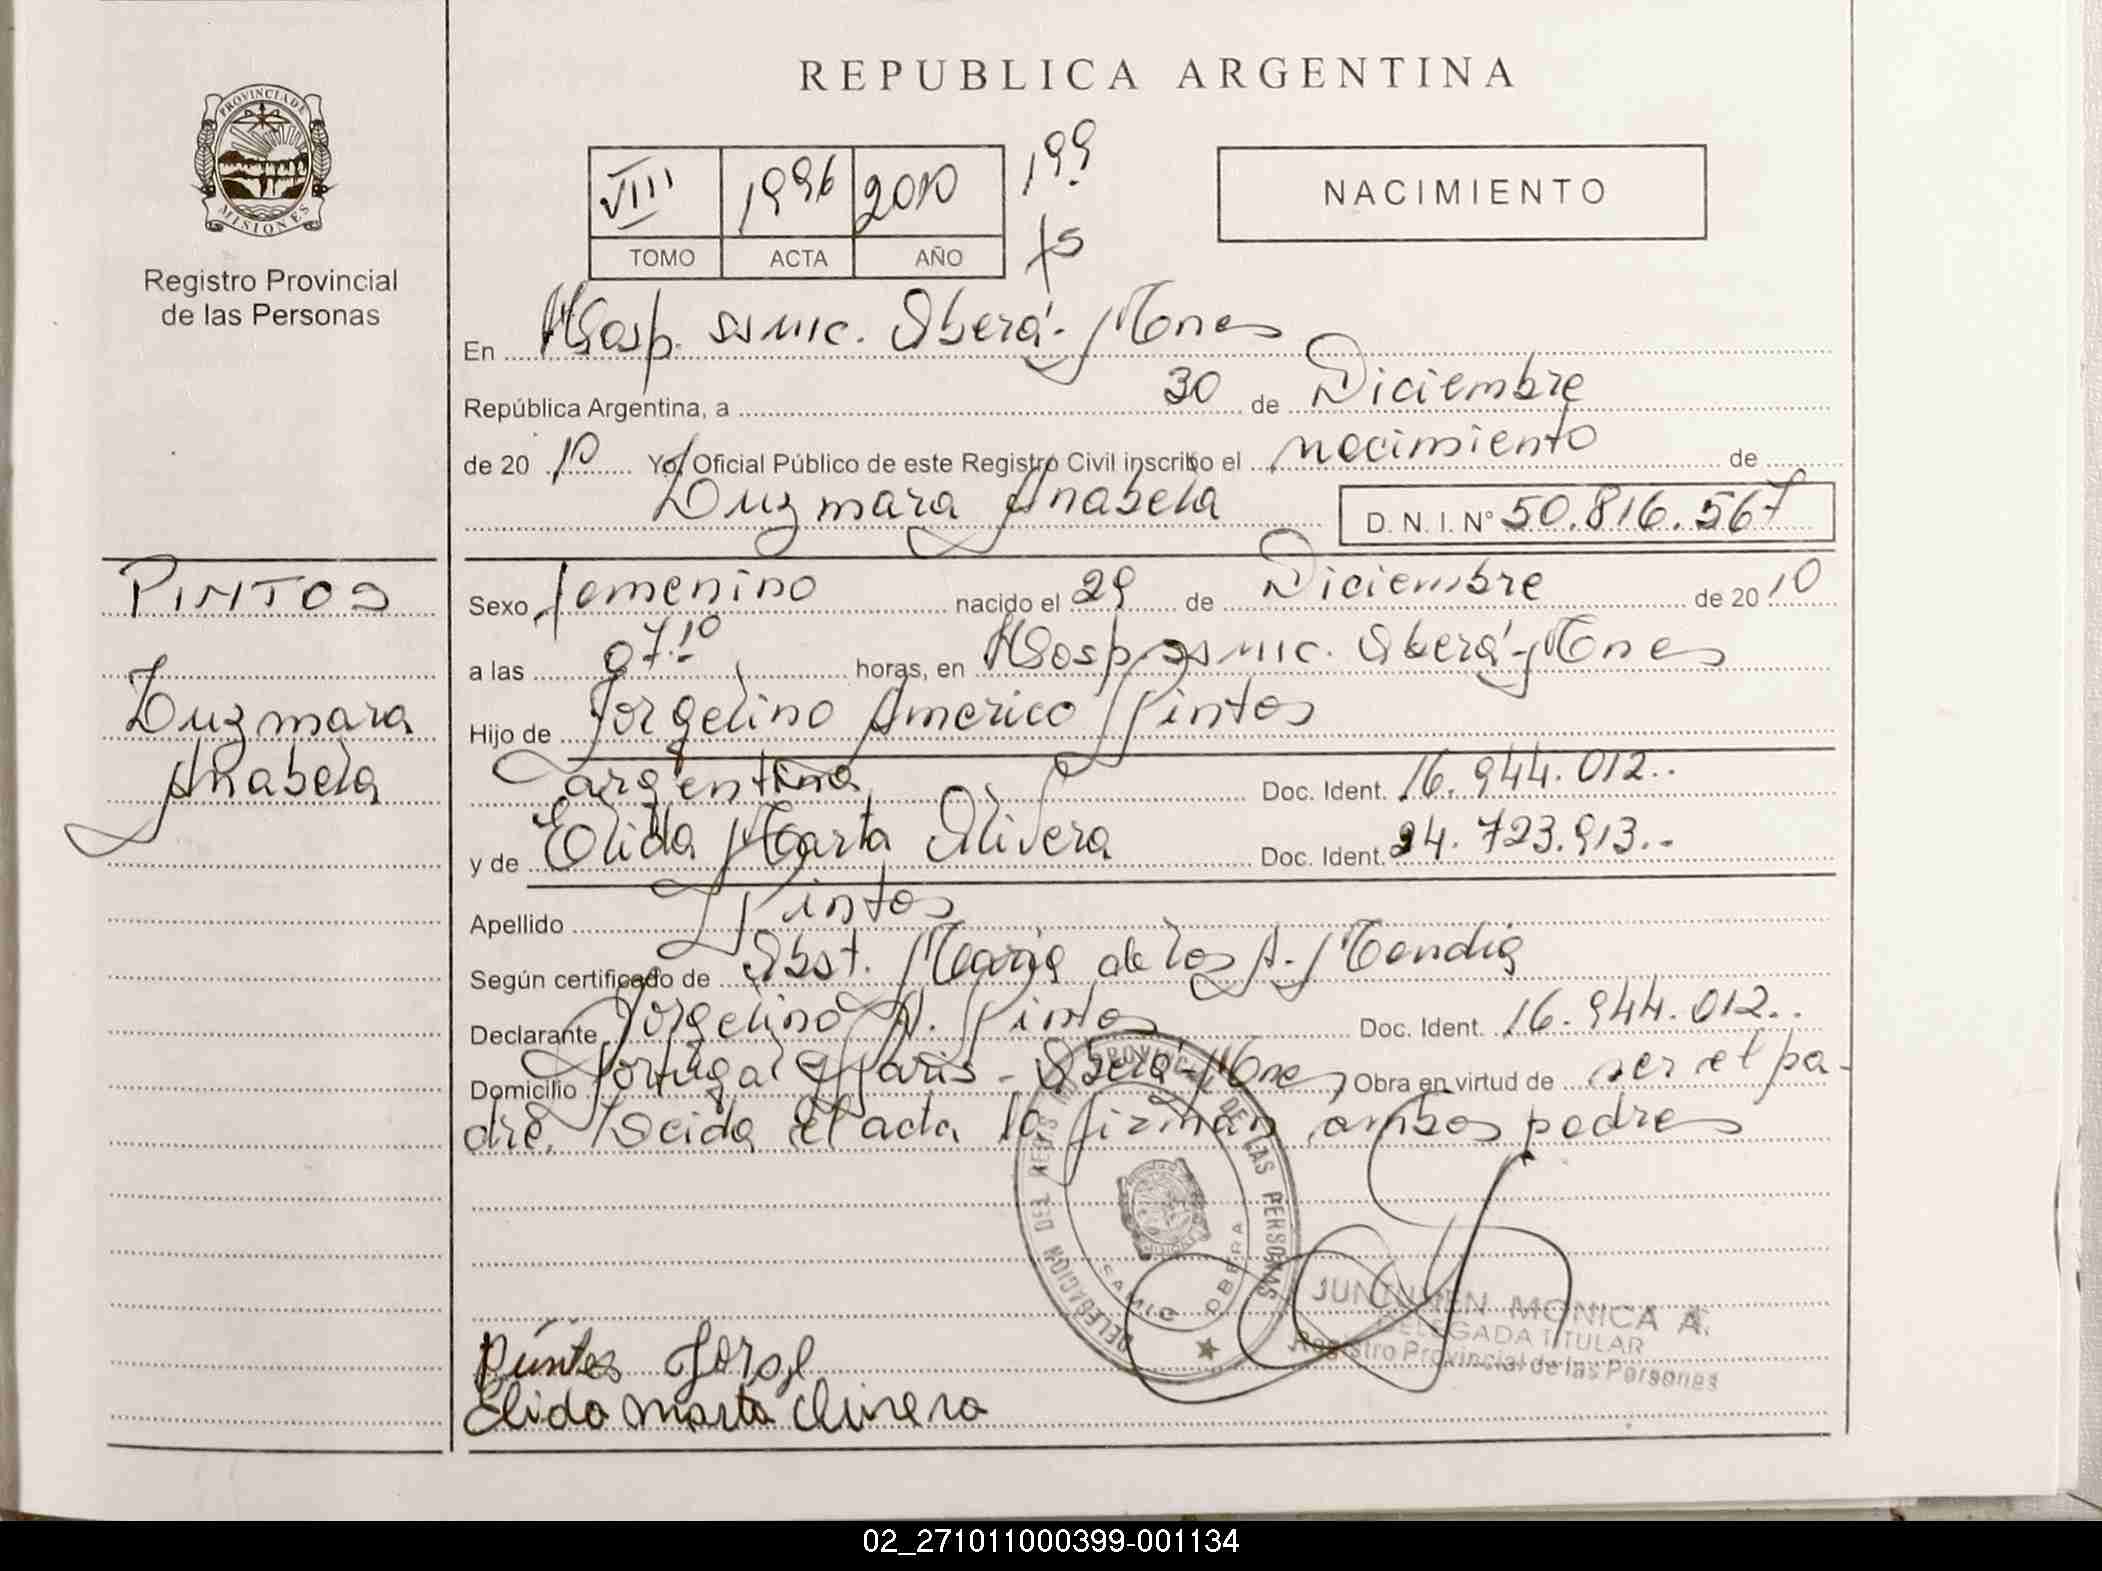 REPUBLICA ARGENTINA
PROVINCIA DE
MISIONES
Registro Provincial
de las Personas
VIII 1996 2010 199
TOMO ACTA AÑO
NACIMIENTO
En Hosp. ssmic. Oberá- Mones
República Argentina, a 30 de Diciembre
de 20 10 Yo, Oficial Público de este Registro Civil inscribo el nacimiento de
Luzmara Anabela D. N. I. N° 50.816.567
PINTOS
Luzmara
Anabela
Sexo femenino nacido el 29 de Diciembre de 20 10
a las 07.10 horas, en Hosp. ssmic. Oberá- Mones
Hijo de Jorgelino Americo Pintos
argentina Doc. Ident. 16.944.012..
y de Elida Marta Olivera Doc. Ident. 24.723.913..
Apellido Pintos
Según certificado de Obst. Maria de los A. Mendig
Declarante Jorgelino A. Pintos Doc. Ident. 16.944.012..
Domicilio Portugal y Paris - Oberá- Mones Obra en virtud de ser el pa-
dre. Leida el acta la firman ambos padres
DELEGACION DEL REGISTRO PROVINCIAL DE LAS PERSONAS
OBERA
MONICA A.
DELEGADA TITULAR
Registro Provincial de las Personas
Pintos Jorge
Elida Marta Olivera
02_271011000399-001134